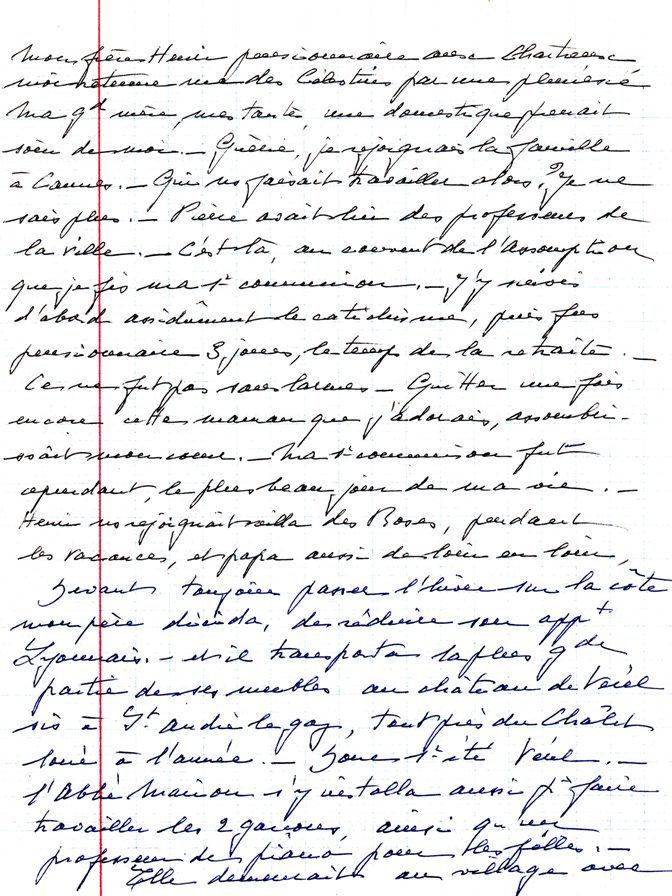 Mon frère Henri pensionnaire avec Chartreux
une pleurésie
Ma gd mère, mes tantes, une domestique prenait
soin de moi. — Guérie, je rejoignais la famille
à Cannes. — Qui ns faisait travailler alors ? Je ne
sais plus. — Pierre avait lui des professeurs de
la ville. — C'est là, au couvent de l'Assomption
que je fis ma 1e communion. — J'y suivis
d'abord assidûment le catéchisme, puis fus
pensionnaire 3 jours, le temps de la retraite. —
Ce ne fut pas sans larmes — Quitter une fois
encore cette maman que j'adorais, assombris-
sait mon cœur. — Ma 1e communion fut
cependant, le plus beau jour de ma vie. —
Henri ns rejoignait villa des Roses, pendant
les vacances, et papa aussi de loin en loin,
Devant toujours passer l'hiver sur la côte
mon père décida, de réduire son appt
Lyonnais. — et il transporta la plus gde
partie de ses meubles au château de Vérel
sis à St André le gaz, tout près du Châlet
loué à l'année. — Donc 1e été Vérel. —
l'Abbé s'y installa aussi pr faire
travailler les 2 garçons, ainsi qu'un
professeur de piano pour les filles. —
Elle demeurait au village avec